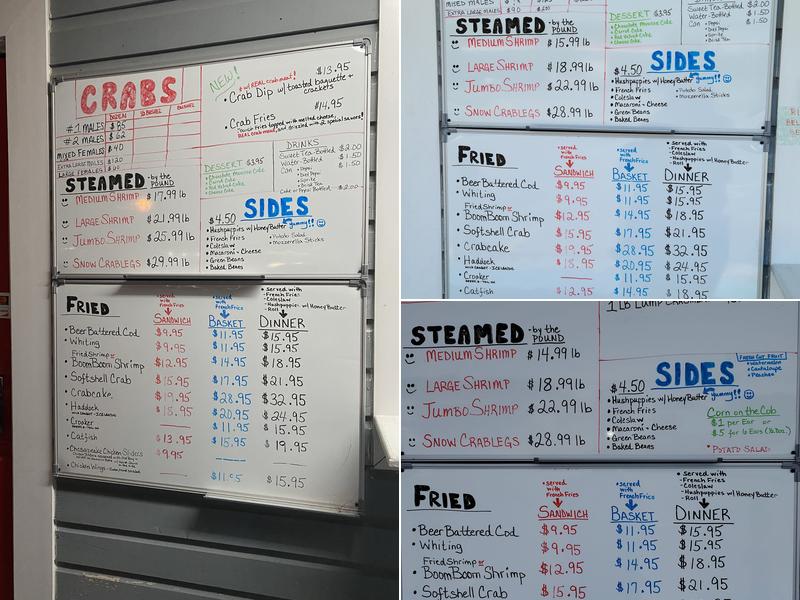 CRABS
DOZEN ½ BUSHEL BUSHEL
#1 MALES $85
#2 MALES $62
MIXED FEMALES $40
EXTRA LARGE MALES $120
LARGE FEMALES
NEW!
w/ REAL crab meat!
• Crab Dip w/ toasted baguette + crackers $13.95
• Crab Fries $14.95
DESSERT $3.95
• Chocolate Mousse Cake
• Carrot Cake
• Red Velvet Cake
• Cheese Cake
DRINKS
Sweet Tea-Bottled $2.00
Water-Bottled $1.50
Can • Pepsi $1.50
• Diet Pepsi
STEAMED - by the POUND
MEDIUM SHRIMP $17.99 lb
LARGE SHRIMP $21.99 lb
JUMBO SHRIMP $25.99 lb
SNOW CRABLEGS $29.99 lb
$4.50 SIDES
• Hushpuppies w/ Honey Butter yummy!!
• French Fries
• Coleslaw
• Macaroni-Cheese
• Green Beans
• Baked Beans
• Potato Salad
• Mozzarella Sticks
FRIED
• served with French Fries
SANDWICH
• served with French Fries
BASKET
• served with
- French Fries
- Coleslaw
- Hushpuppies w/ Honey Butter
- Roll
DINNER
• Beer Battered Cod $9.95 $11.95 $15.95
• Whiting $9.95 $11.95 $15.95
Fried Shrimp or
• BoomBoom Shrimp $12.95 $14.95 $18.95
• Softshell Crab $15.95 $17.95 $21.95
• Crabcake $19.95 $28.95 $32.95
• Haddock $18.95 $20.95 $24.95
• Croaker $11.95 $15.95
• Catfish $13.95 $15.95 $19.95
• Chesapeake Chicken Sliders $9.95
• Chicken Wings $11.95 $15.95
MIXED FEMALES
EXTRA LARGE MALES
DESSERT $3.95
• Chocolate Mousse Cake
• Carrot Cake
• Red Velvet Cake
• Cheese Cake
Sweet Tea-Bottled $2.00
Water-Bottled $1.50
Can • Pepsi $1.50
• Diet Pepsi
STEAMED - by the POUND
MEDIUM SHRIMP $15.99 lb
LARGE SHRIMP $18.99 lb
JUMBO SHRIMP $22.99 lb
SNOW CRABLEGS $28.99 lb
$4.50 SIDES
• Hushpuppies w/ Honey Butter yummy!!
• French Fries
• Coleslaw
• Macaroni-Cheese
• Green Beans
• Baked Beans
• Potato Salad
• Mozzarella Sticks
FRIED
• served with French Fries
SANDWICH
• served with French Fries
BASKET
• served with
- French Fries
- Coleslaw
- Hushpuppies w/ Honey Butter
- Roll
DINNER
• Beer Battered Cod $9.95 $11.95 $15.95
• Whiting $9.95 $11.95 $15.95
Fried Shrimp or
• BoomBoom Shrimp $12.95 $14.95 $18.95
• Softshell Crab $15.95 $17.95 $21.95
• Crabcake $19.95 $28.95 $32.95
• Haddock $18.95 $20.95 $24.95
• Croaker $11.95 $15.95
• Catfish $12.95 $14.95 $18.95
STEAMED - by the POUND
MEDIUM SHRIMP $14.99 lb
LARGE SHRIMP $18.99 lb
JUMBO SHRIMP $22.99 lb
SNOW CRABLEGS $28.99 lb
FRESH CUT FRUIT
• Watermelon
• Cantaloupe
• Peaches
$4.50 SIDES
• Hushpuppies w/ Honey Butter yummy!!
• French Fries
• Coleslaw
• Macaroni-Cheese
• Green Beans
• Baked Beans
Corn on the Cob
$1 per Ear or
$5 for 6 Ears (½ Doz.)
• POTATO SALAD
FRIED
• served with French Fries
SANDWICH
• served with French Fries
BASKET
• served with
- French Fries
- Coleslaw
- Hushpuppies w/ Honey Butter
- Roll
DINNER
• Beer Battered Cod $9.95 $11.95 $15.95
• Whiting $9.95 $11.95 $15.95
Fried Shrimp or
• BoomBoom Shrimp $12.95 $14.95 $18.95
• Softshell Crab $15.95 $17.95 $21.95